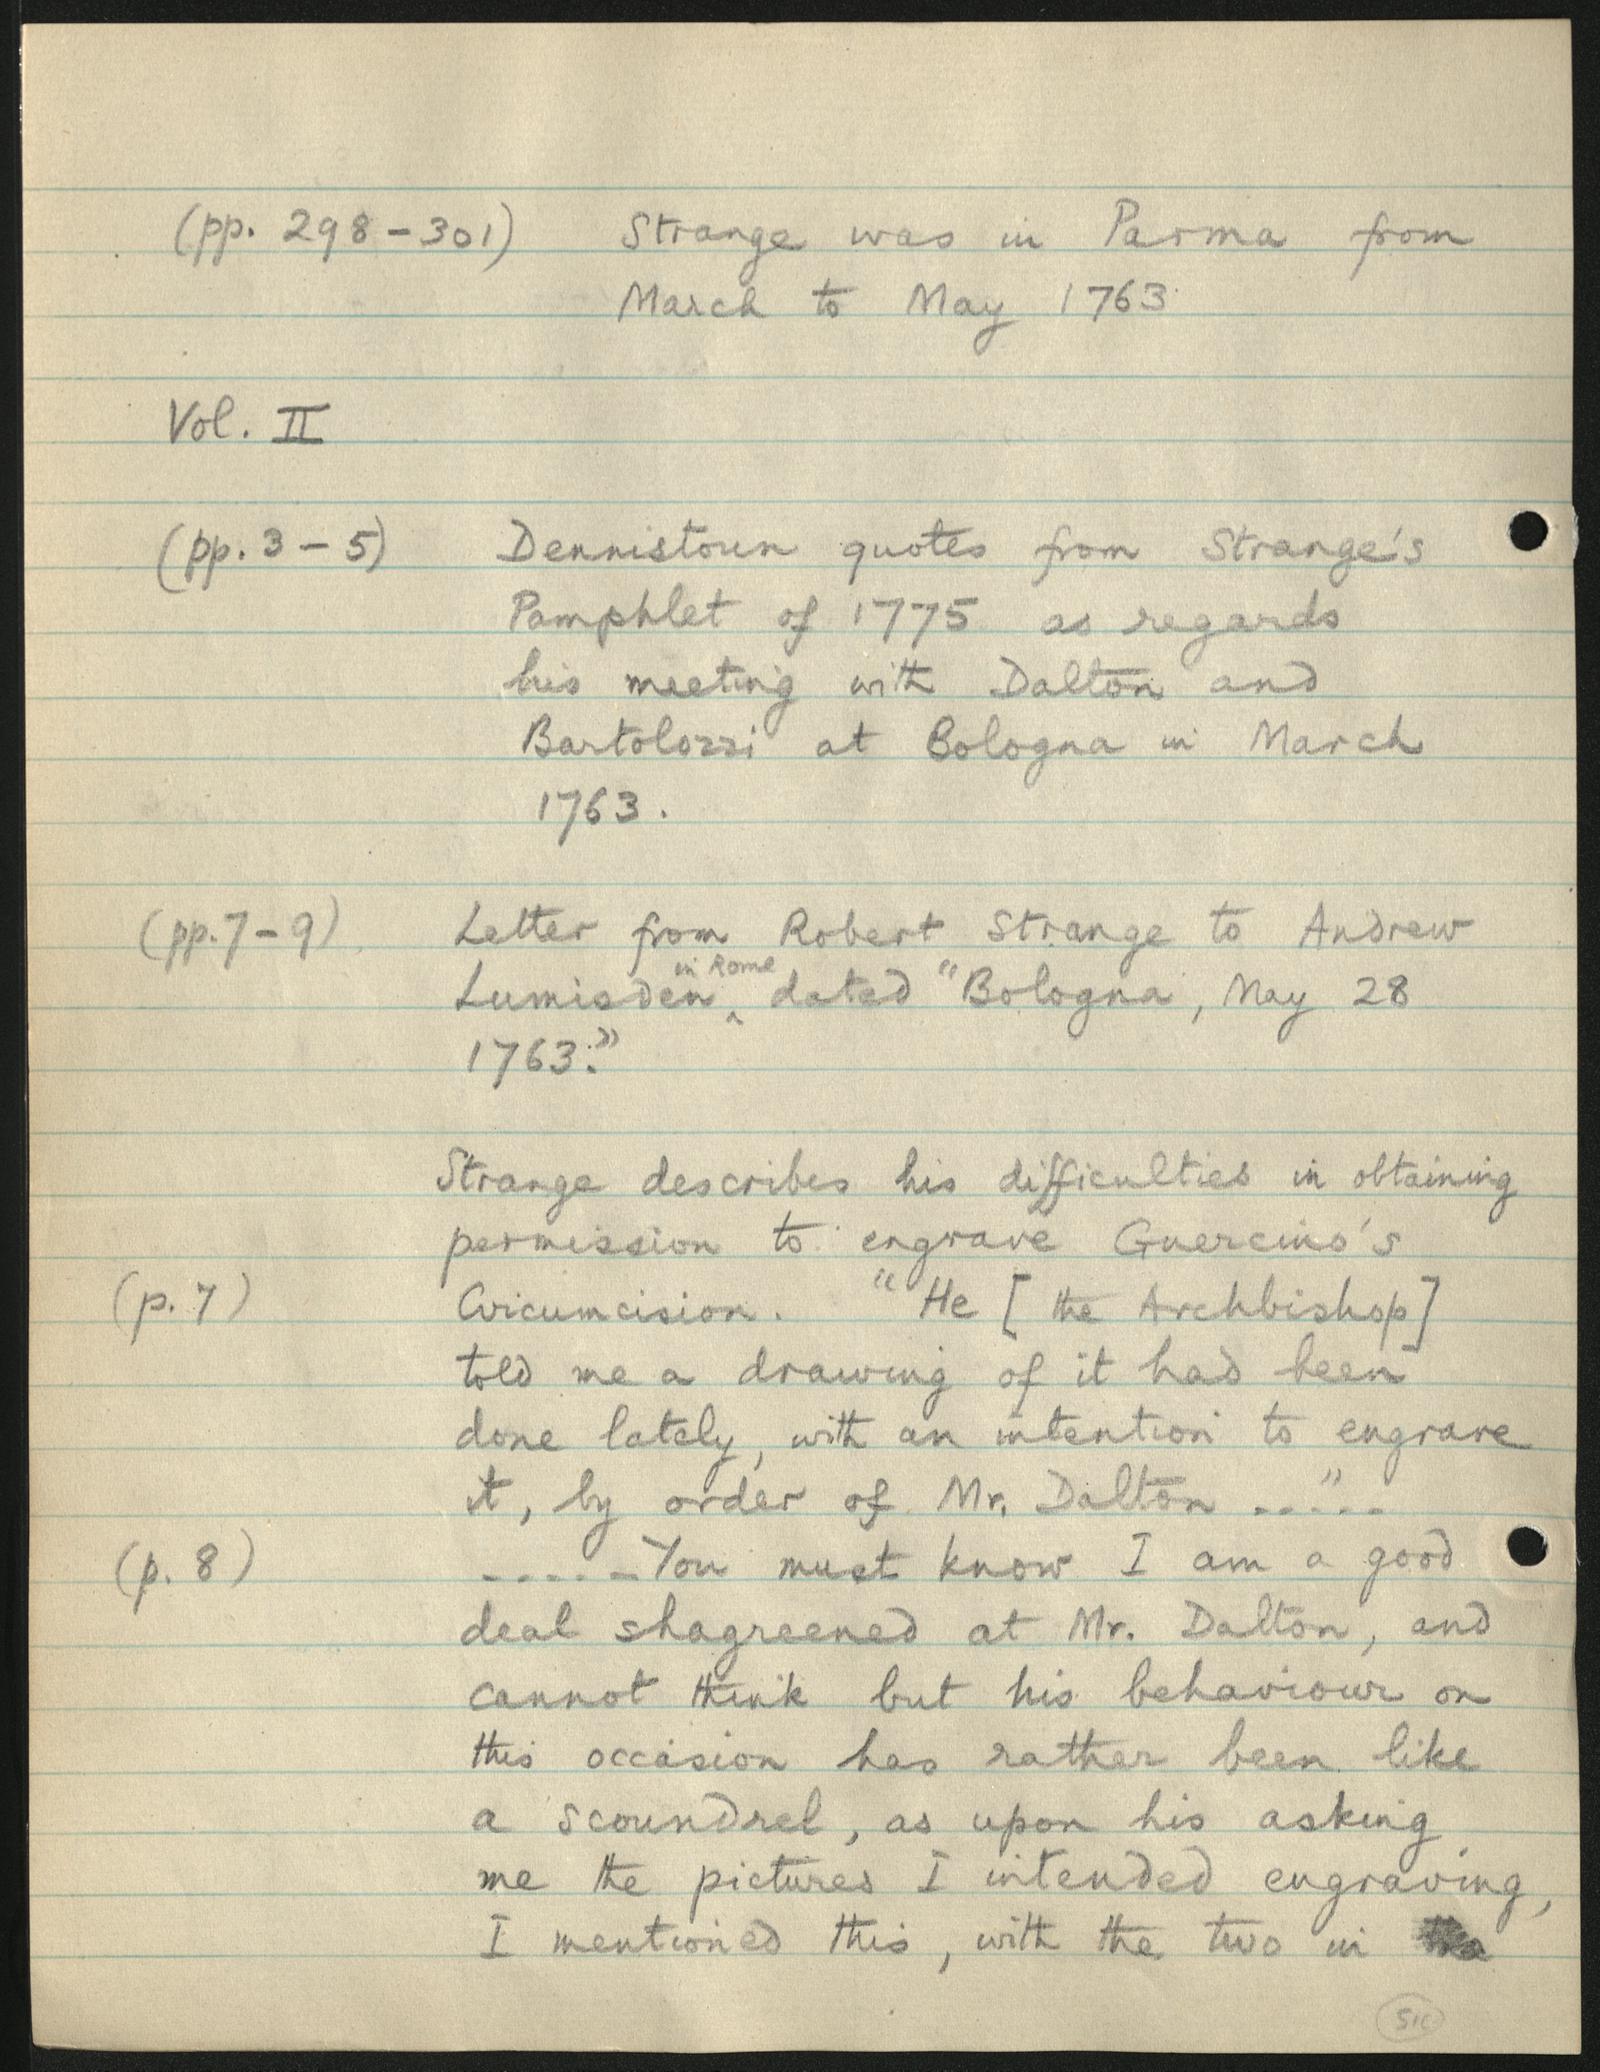 (pp. 298-301) Strange was in Parma from
March to May 1763
Vol. II
(pp. 3-5) Dennistoun quotes from Strange's
Pamphlet of 1775 as regards
his meeting with Dalton and
Bartolozzi at Bologna in March
1763.
(pp. 7-9) Letter from Robert Strange to Andrew
in Rome
Lumisden ^ dated "Bologna, May 28
1763."
Strange describes his difficulties in obtaining
permission to engrave Guercino's
(p. 7) Cricumcision. "He [the Archbishop]
told me a drawing of it had been
done lately, with an intention to engrave
it, by order of Mr. Dalton ....."
(p. 8) ..... You must know I am a good
deal shagreened at Mr. Dalton, and
cannot think but his behaviour on
this occasion has rather been like
a scoundrel, as upon his asking
me the pictures I intended engraving,
I mentioned this, with the two in